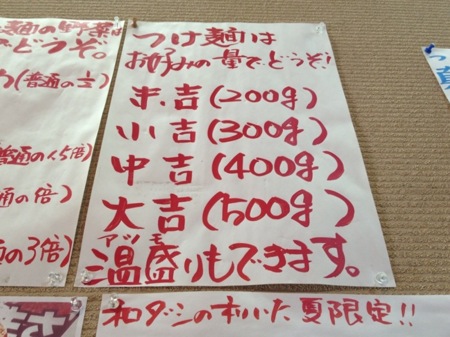 麺の野菜は
でどうぞ。
(普通の½)
普通の1.5倍)
通の倍)
の3倍)
つけ麺は
お好みの量で、どうぞ!
末吉(200g)
小吉(300g)
中吉(400g)
大吉(500g)
アツモ
温盛りもできます。
和ダシの本いた夏限定!!